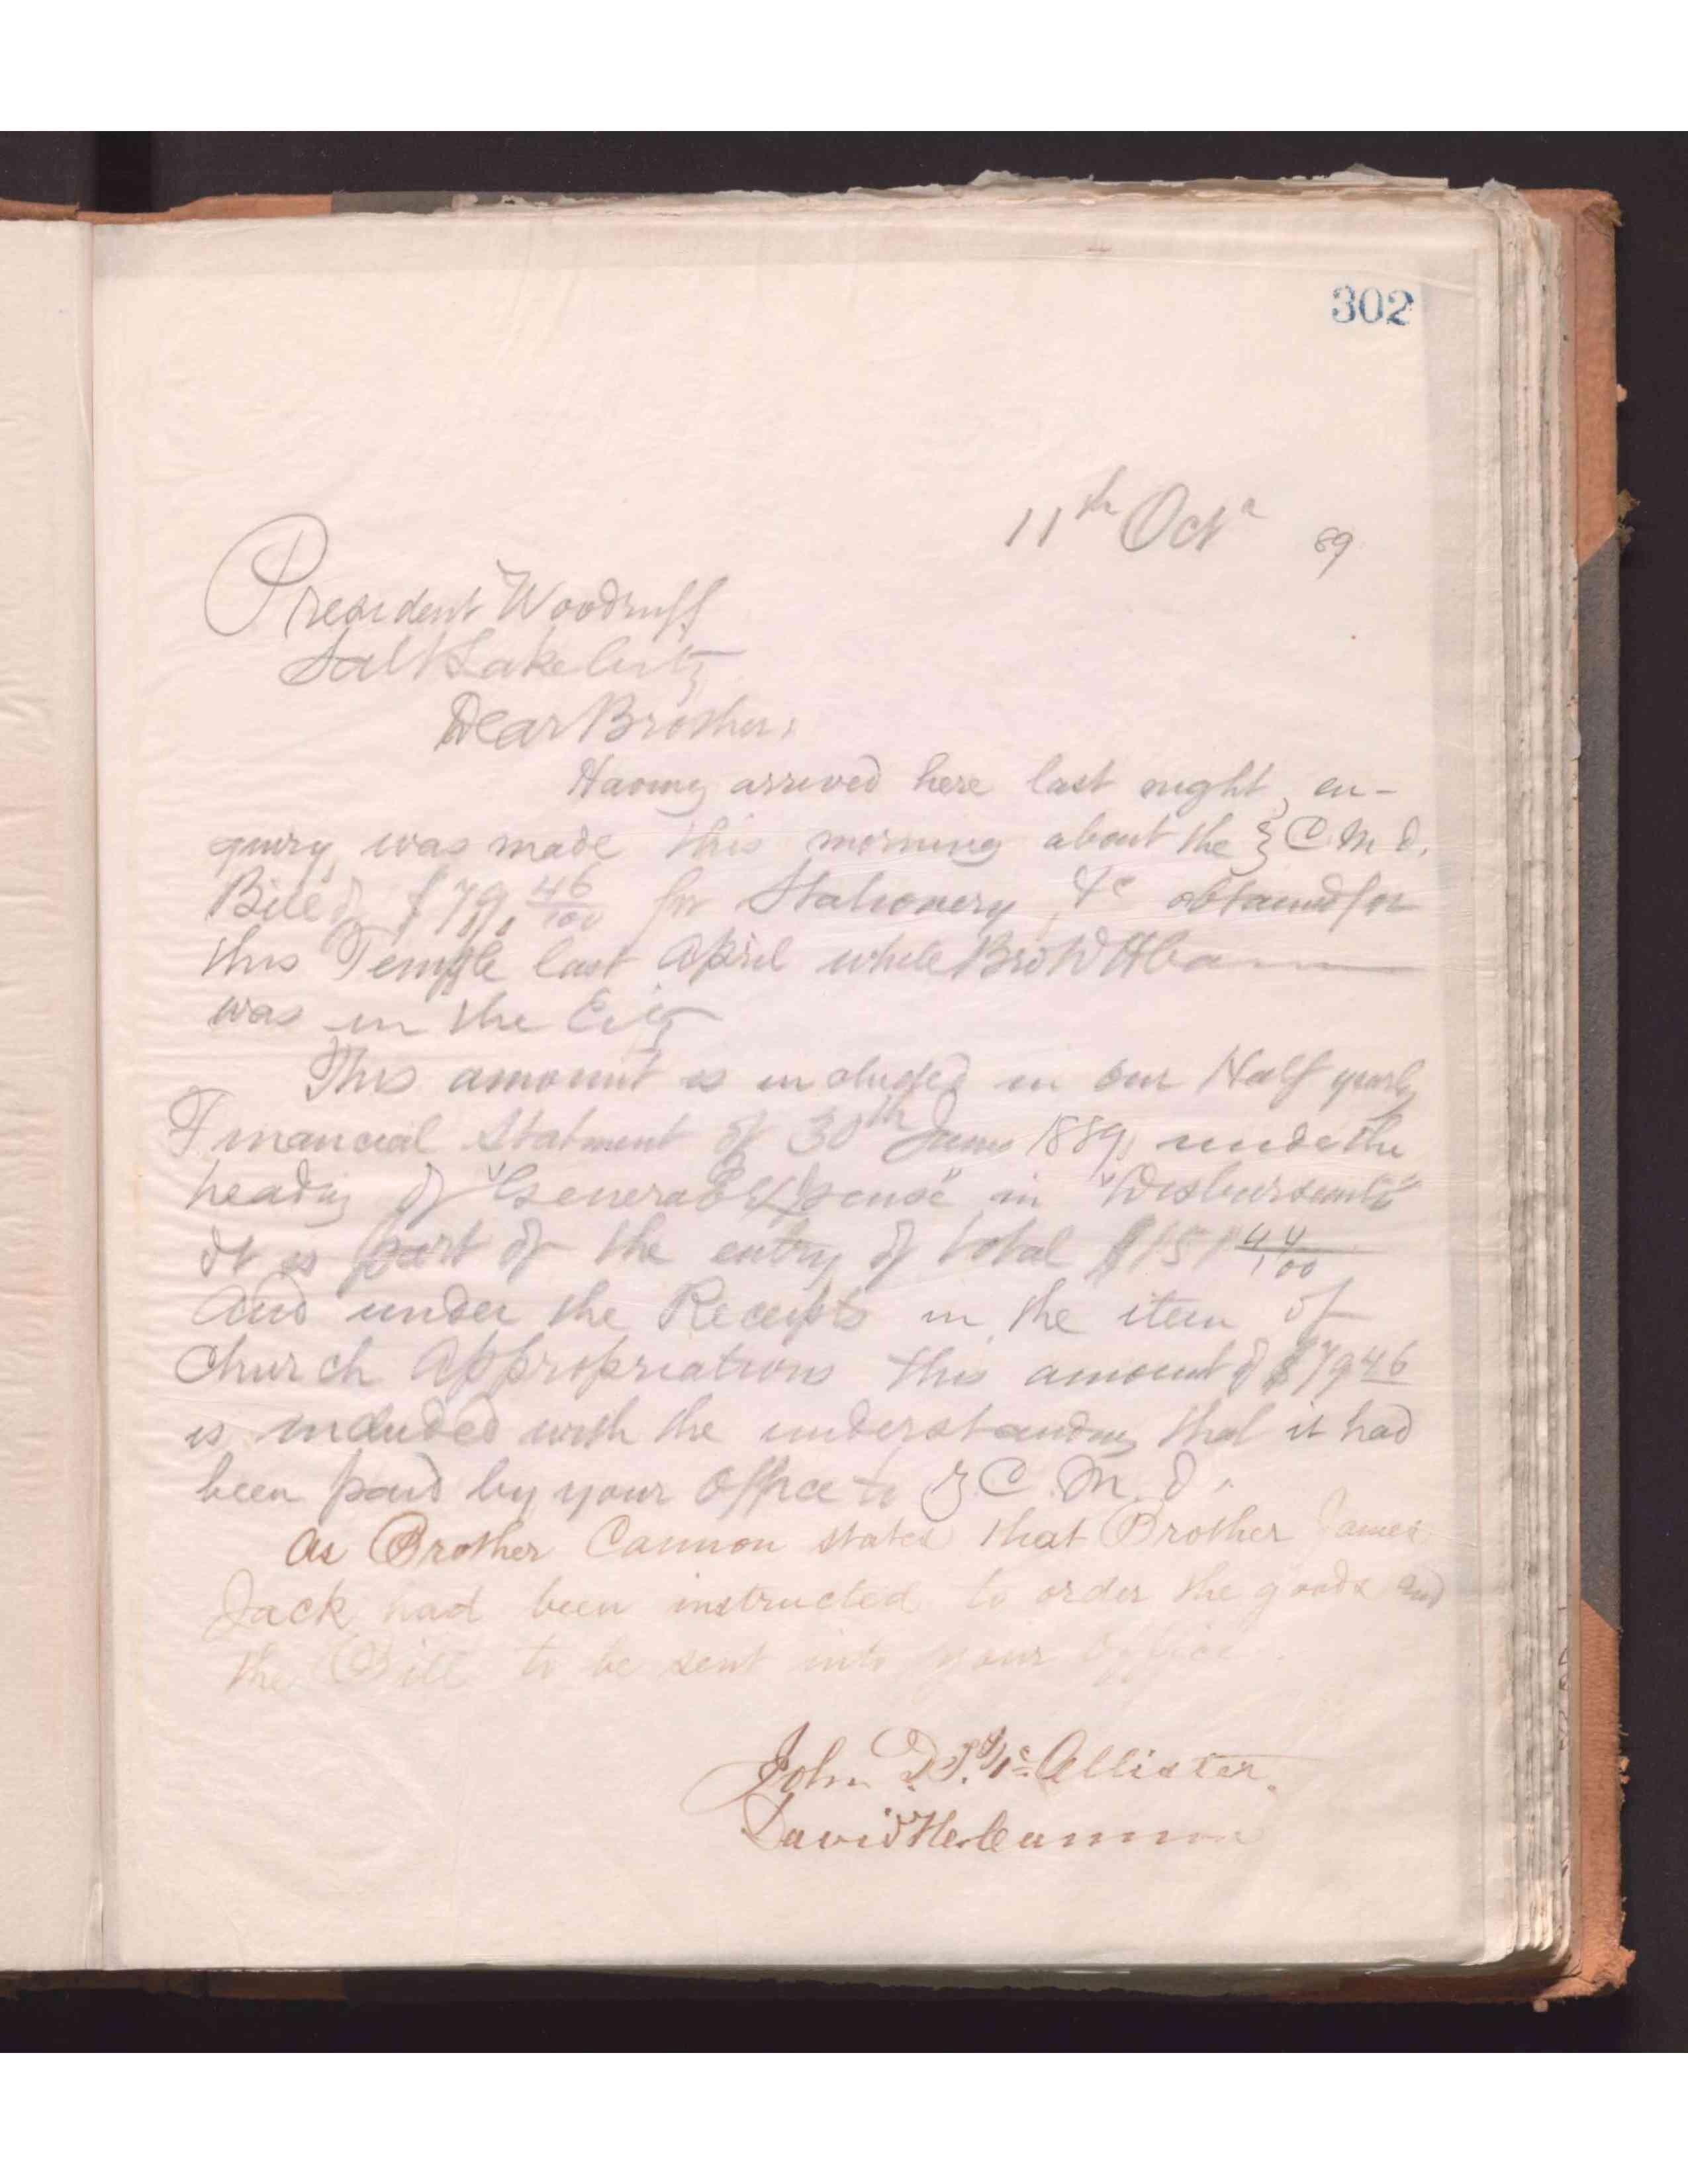 302
11th Octr 89
President Woodruff
Salt Lake City
Dear Brother;
Having arrived here last night, en-
quiry was made this morning about the Z C. M. I.
Bill of $79. 46/100 for Stationery, &c obtained for
this Temple last April while Bro
was in the City
This amount is included in our Half yearly
Financial Statment of 30th June 1889, under the
heading of "General Expense" in "Disbursements"
It is part of the entry of total $151 44/100
And under the Receipts in the item of
Church Appropriations this amount of $79 46
is included with the understanding that it had
been paid by your Office to Z C. M. I.
As Brother Cannon states that Brother James
Jack had been instructed to order the goods and
the Bill to be sent into your Office.
John D. T. McAllister.
David H. Cannon